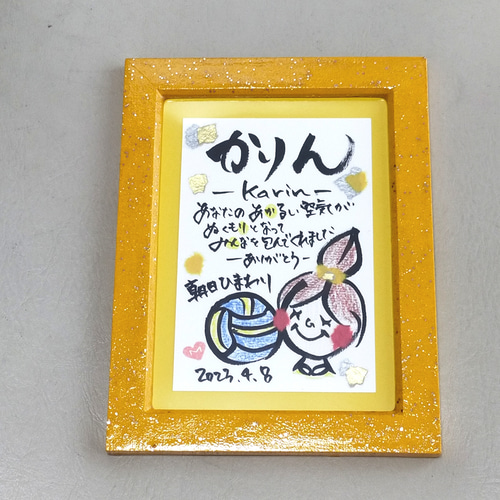 かりん
－Karin－
あなたの あかるい空気が
ぬくもりとなって
みんなを包んでくれました
－ありがとう－
朝日ひまわり
M
2023.4.8